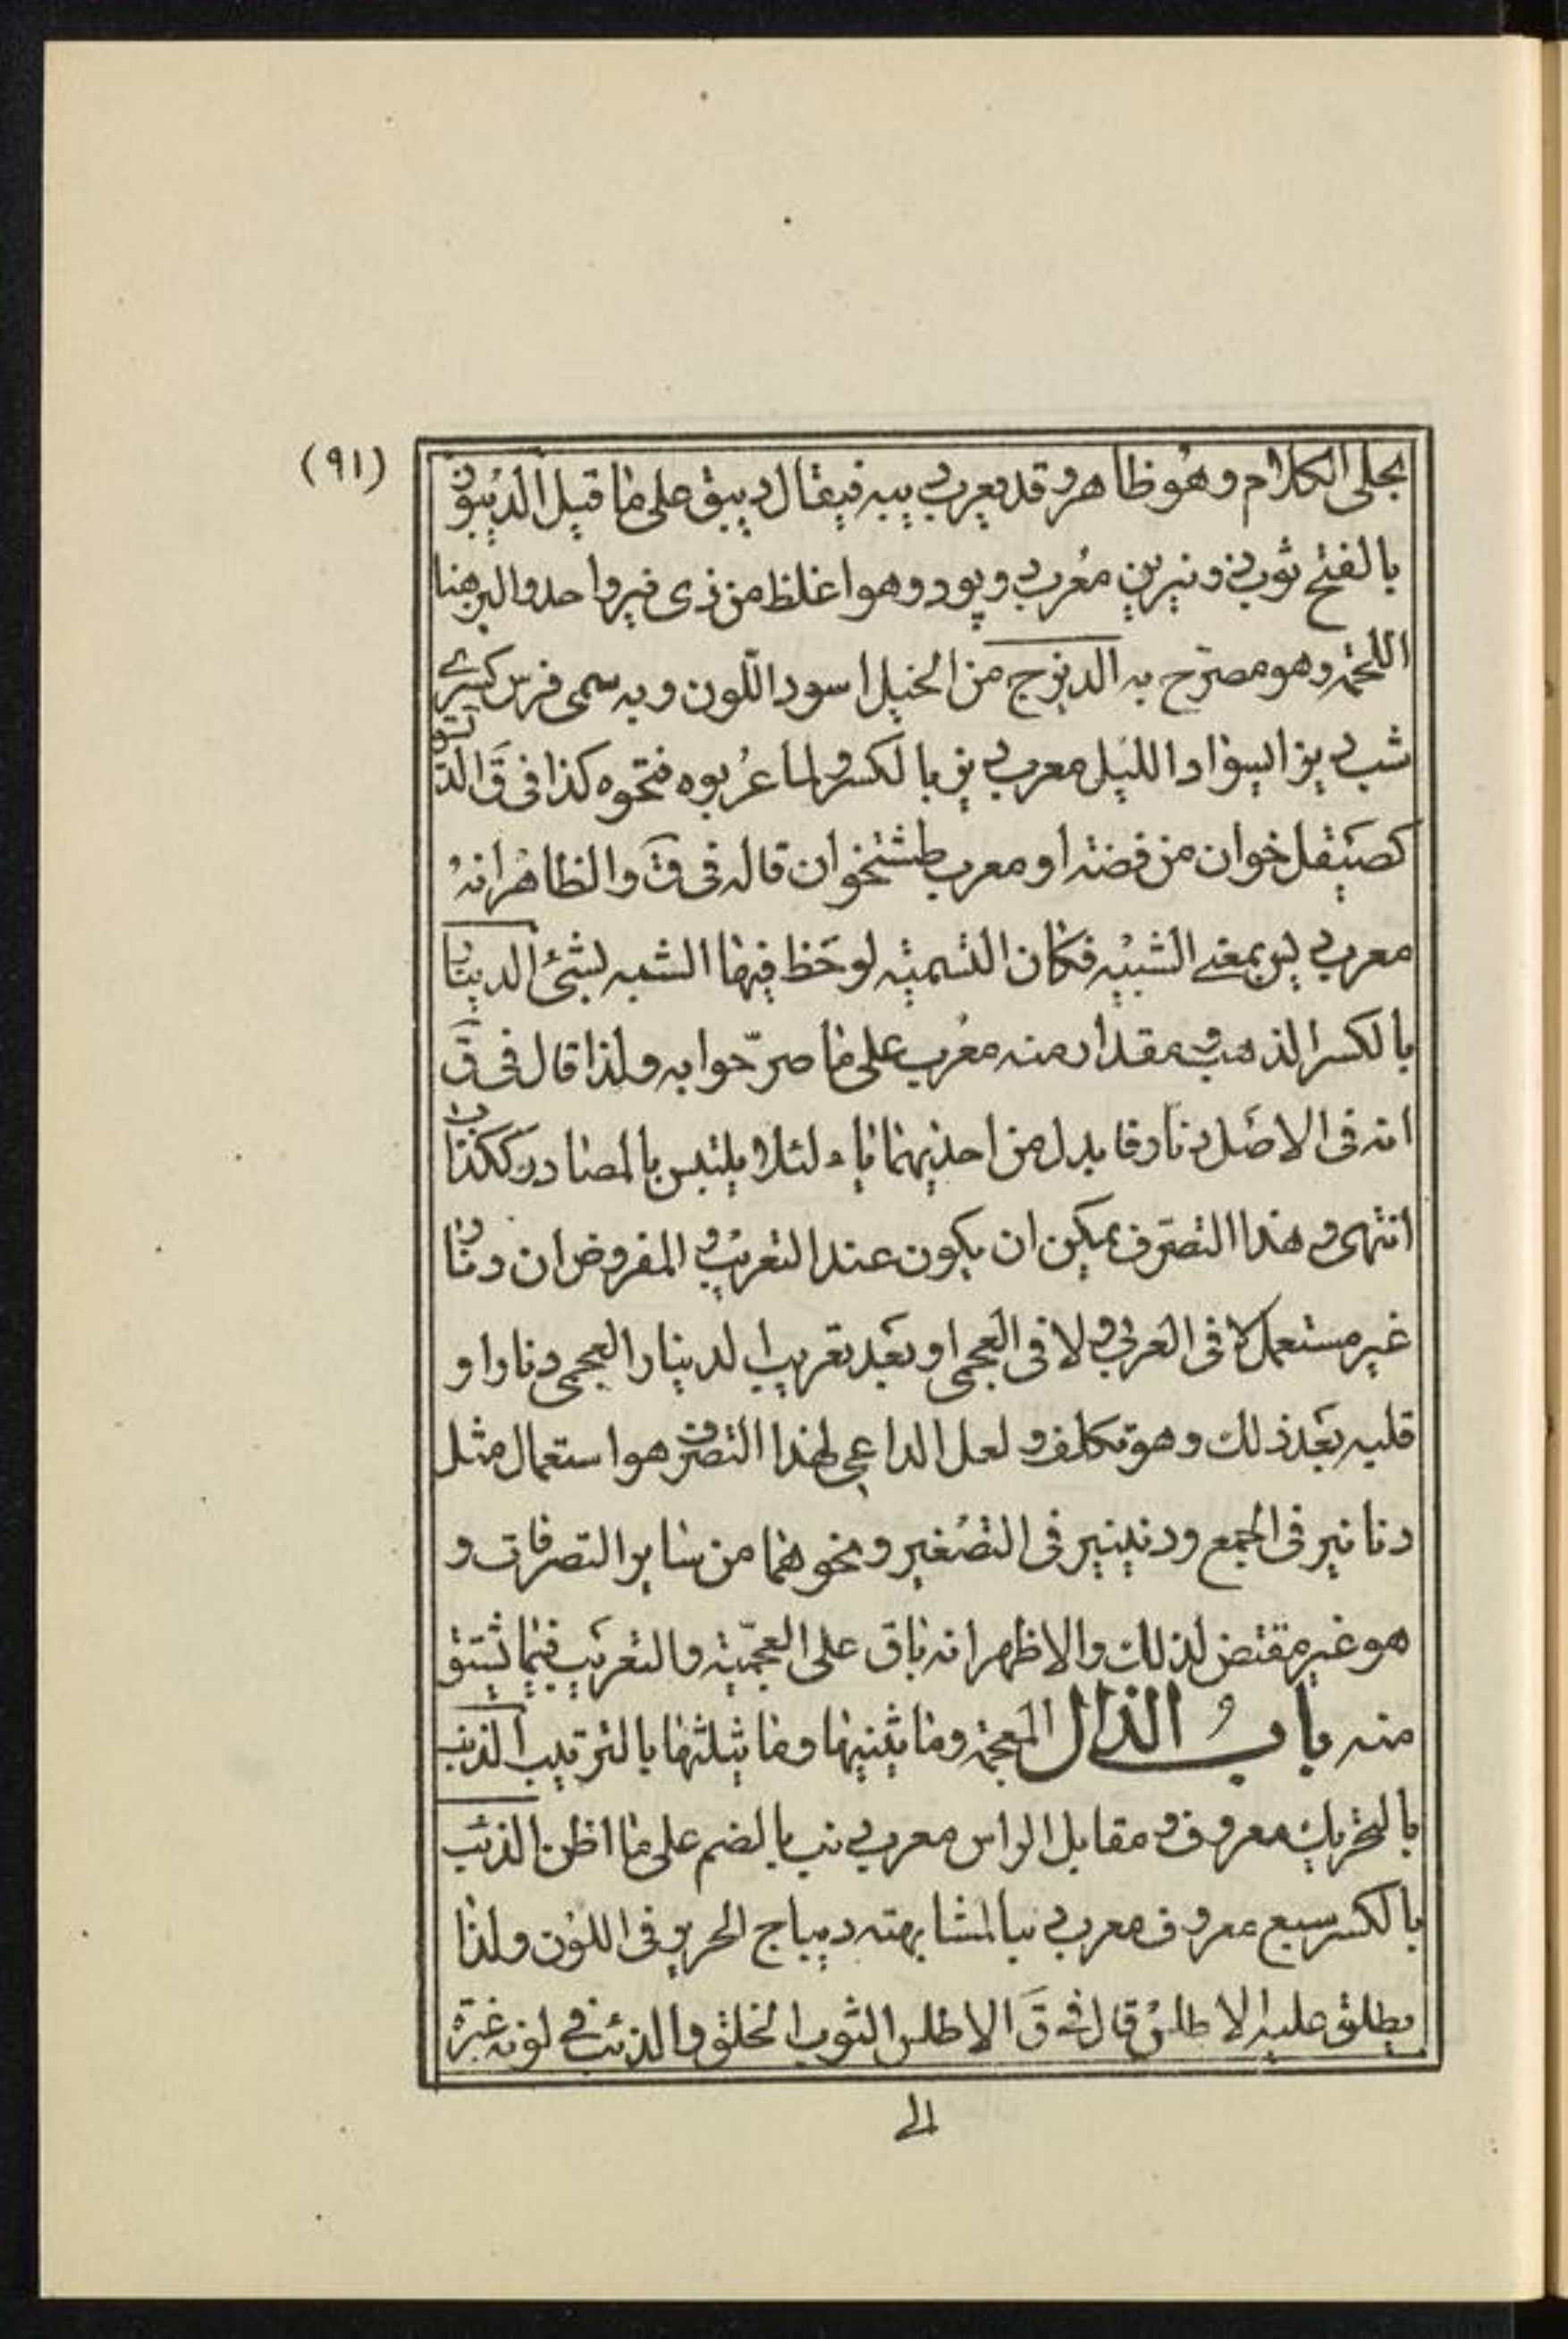 (٩١)
بجلى الكلام وهو ظاهر وقد يعرب ديبه فيقال ديبق على ما قيل الديبوذ
بالفتح ثوب ذو نيرين معرب دوپود وهو اغلظ من ذى نير واحد والنير هنا
اللحمة وهو مصرّح به الديزج من الخيل اسود اللّون وبه سمى فرس كسرى
شب ديز اى سواد الليل معرب ديز بالكسر ولما عرّبوه فتحوه كذا فى ق الديسق
كصيقل خوان من فضة او معرب طشتخوان قاله فى ق والظاهر انه
معرب ديس بمعنى الشبيه فكان التسمية لوحظ فيها الشبه بشئ الدينار
بالكسر الذهب ومقدار منه معرب على ما صرّحوا به ولذا قال فى ق
انه فى الاصل دنار فابدل من احديهما ياء لئلا يلتبس بالمصادر ككذاب
انتهى وهذا التصرّف يمكن ان يكون عند التعريب والمفروض ان دنار
غير مستعمل لا فى العربى ولا فى العجمى او بعد تعريب الدينار العجمى دنارا و
قلبه بعد ذلك وهو تكلف ولعل الداعى لهذا التصرف هو استعمال مثل
دنانير فى الجمع ودنينير فى التصغير ونحوهما من ساير التصرفات و
هو غير مقتض لذلك والاظهر انه باق على العجميّة والتعريب فيما يشتق
منه باب الذال المعجمة وما يثنيها وما يثلثها بالترتيب الذنب
بالتحريك معروف ومقابل الراس معرب دنب بالضم على ما اظن الذئب
بالكسر سبع معروف معرب ديبا لمشابهته ديباج الحرير فى اللون ولذا
يطلق عليه الاطلس قال فى ق الاطلس الثوب الخلق والذئب فى لونه غبرة
الى